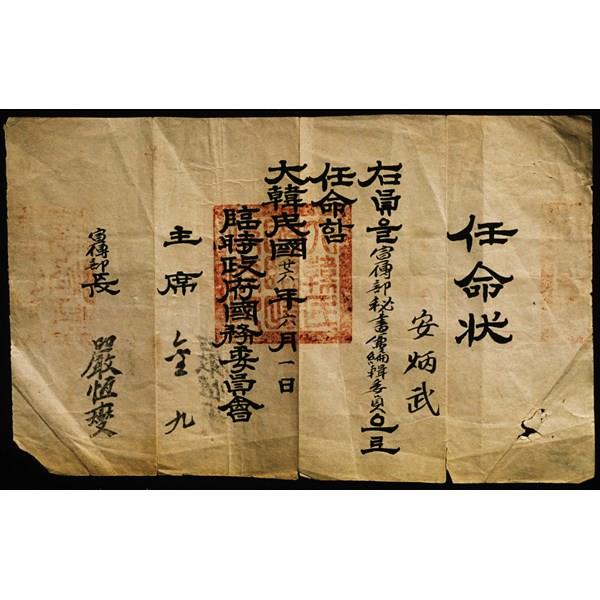 任命狀
安炳武
右員을宣傳部秘書兼編輯委員으로
任命함
大韓民國廿六年六月一日
臨時政府國務委員會
主席 金九
宣傳部長 嚴恒燮